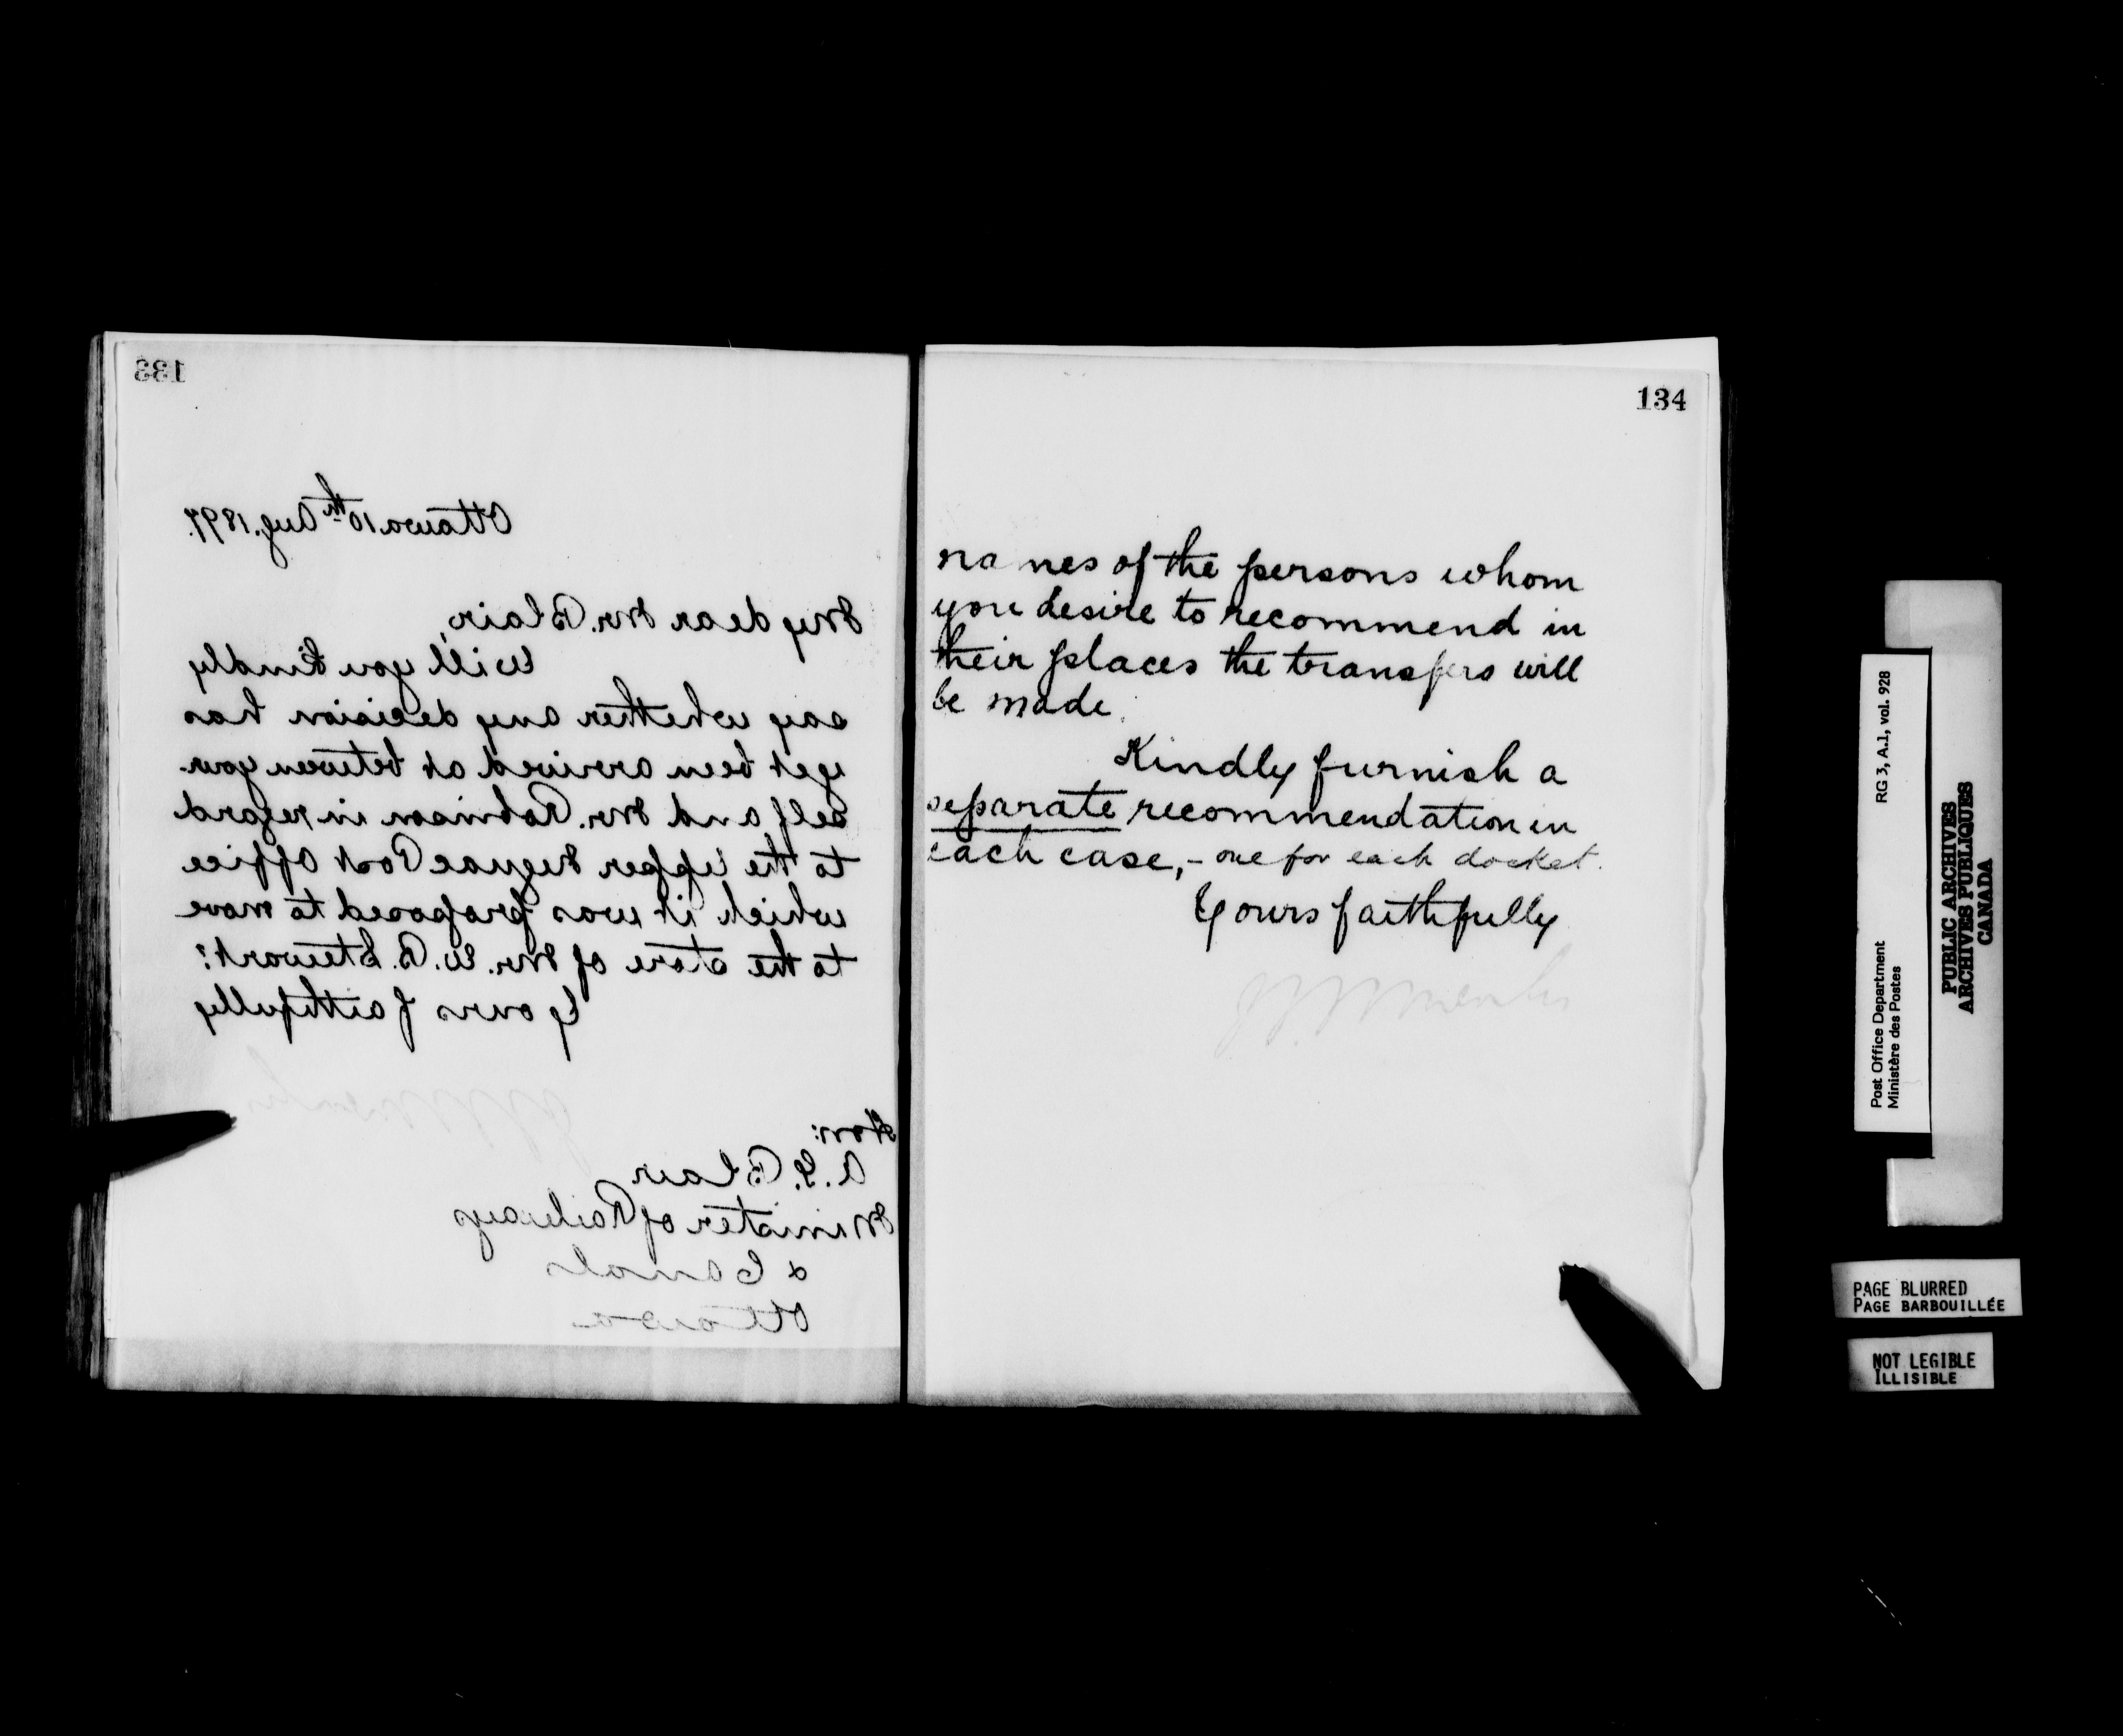 133
Ottawa 10th Aug. 1897.
My dear Mr. Blair,
Will you kindly
say whether any decision has
yet been arrived at between your-
self and Mr. Robinson in regard
to the Upper Neguac Post Office
which it was proposed to move
to the store of Mr. W. B. Stewart?
Yours faithfully
Hon:
A. G. Blair
Minister of Railways
& Canals
Ottawa
134
names of the persons whom
you desire to recommend in
their places the transfers will
be made.
Kindly furnish a
separate recommendation in
each case, - one for each docket.
Yours faithfully
RG 3, A.1, vol. 928
Post Office Department
Ministère des Postes
PUBLIC ARCHIVES
ARCHIVES PUBLIQUES
CANADA
PAGE BLURRED
PAGE BARBOUILLÉE
NOT LEGIBLE
ILLISIBLE